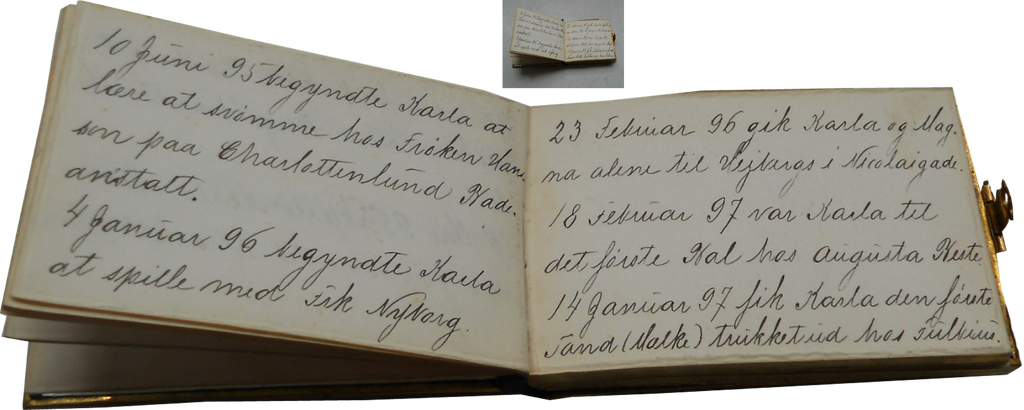 10 Juni 95 begyndte Karla at
lære at svømme hos Frøken Han-
sen paa Charlottenlund Bade-
anstalt.
4 Januar 96 begyndte Karla
at spille med Frk Nyborg.
23 Februar 96 gik Karla og Mag-
na alene til Vejbergs i Nicolaigade.
18 Februar 97 var Karla til
det første Bal hos Augusta Beste.
14 Januar 97 fik Karla den første
Tand (Mælke) trukket ud hos